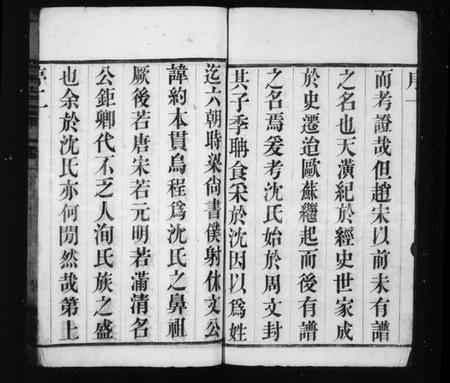 序一
而考證哉但趙宋以前未有譜
之名也天潢紀於經史世家成
於史遷迨歐蘇繼起而後有譜
之名焉爰考沈氏始於周文封
其子季聃食采於沈因以為姓
迄六朝時梁尚書僕射休文公
諱約本貫烏程爲沈氏之鼻祖
厥後若唐宋若元明若滿清名
公鉅卿代不乏人洵氏族之盛
也余於沈氏亦何閒然哉第上
序二